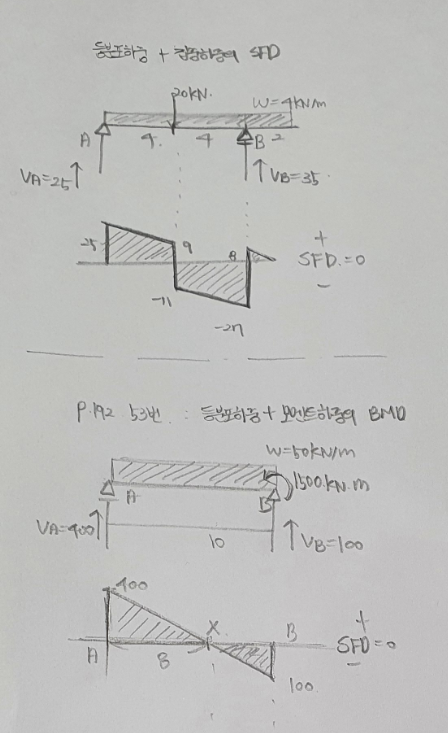 등분포하중 + 집중하중의 SFD
20KN.
W=4KN/m
A
4.
4
B
2
VA=25
VB=35.
25
9
8
+
SFD.=0
-
-11
-27
P.192 53번. : 등분포하중 + 모멘트하중의 BMD
W=50KN/m
1500.KN.m
A
B
VA=400
10
VB=100
400
X.
B
+
SFD=0
-
A
8
100.